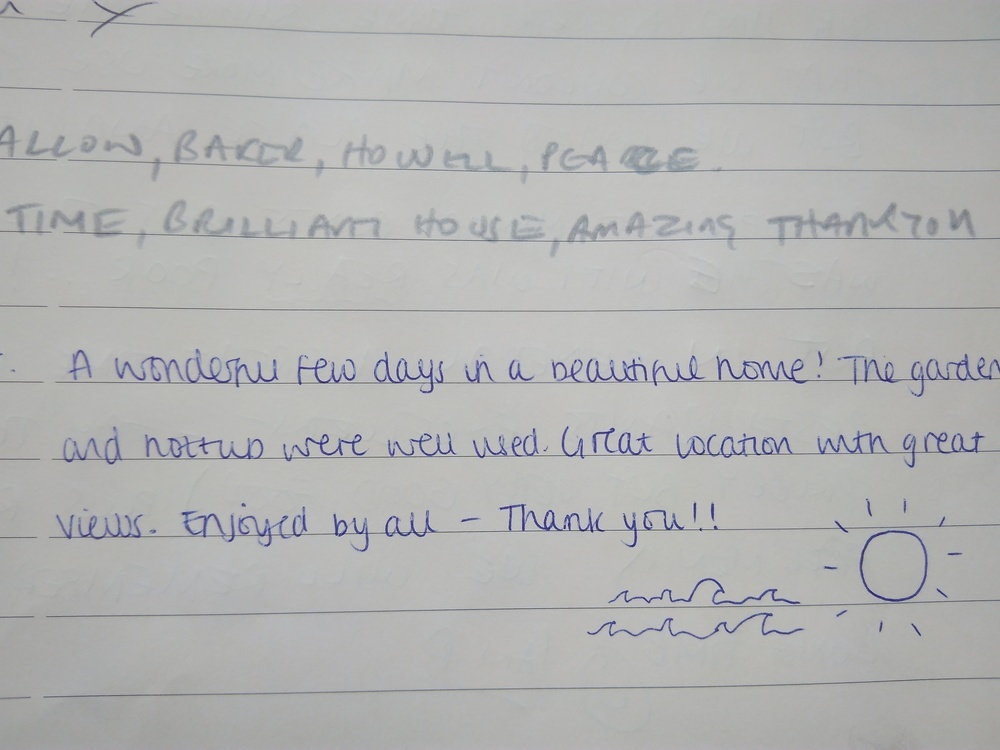 ALLOW, BAKER, HOWELL, PEACE.
TIME, BRILLIANT HOUSE, AMAZING THANKYOU
A wonderful few days in a beautiful home! The garden
and hottub were well used. Great location with great
views. Enjoyed by all - Thank you!!